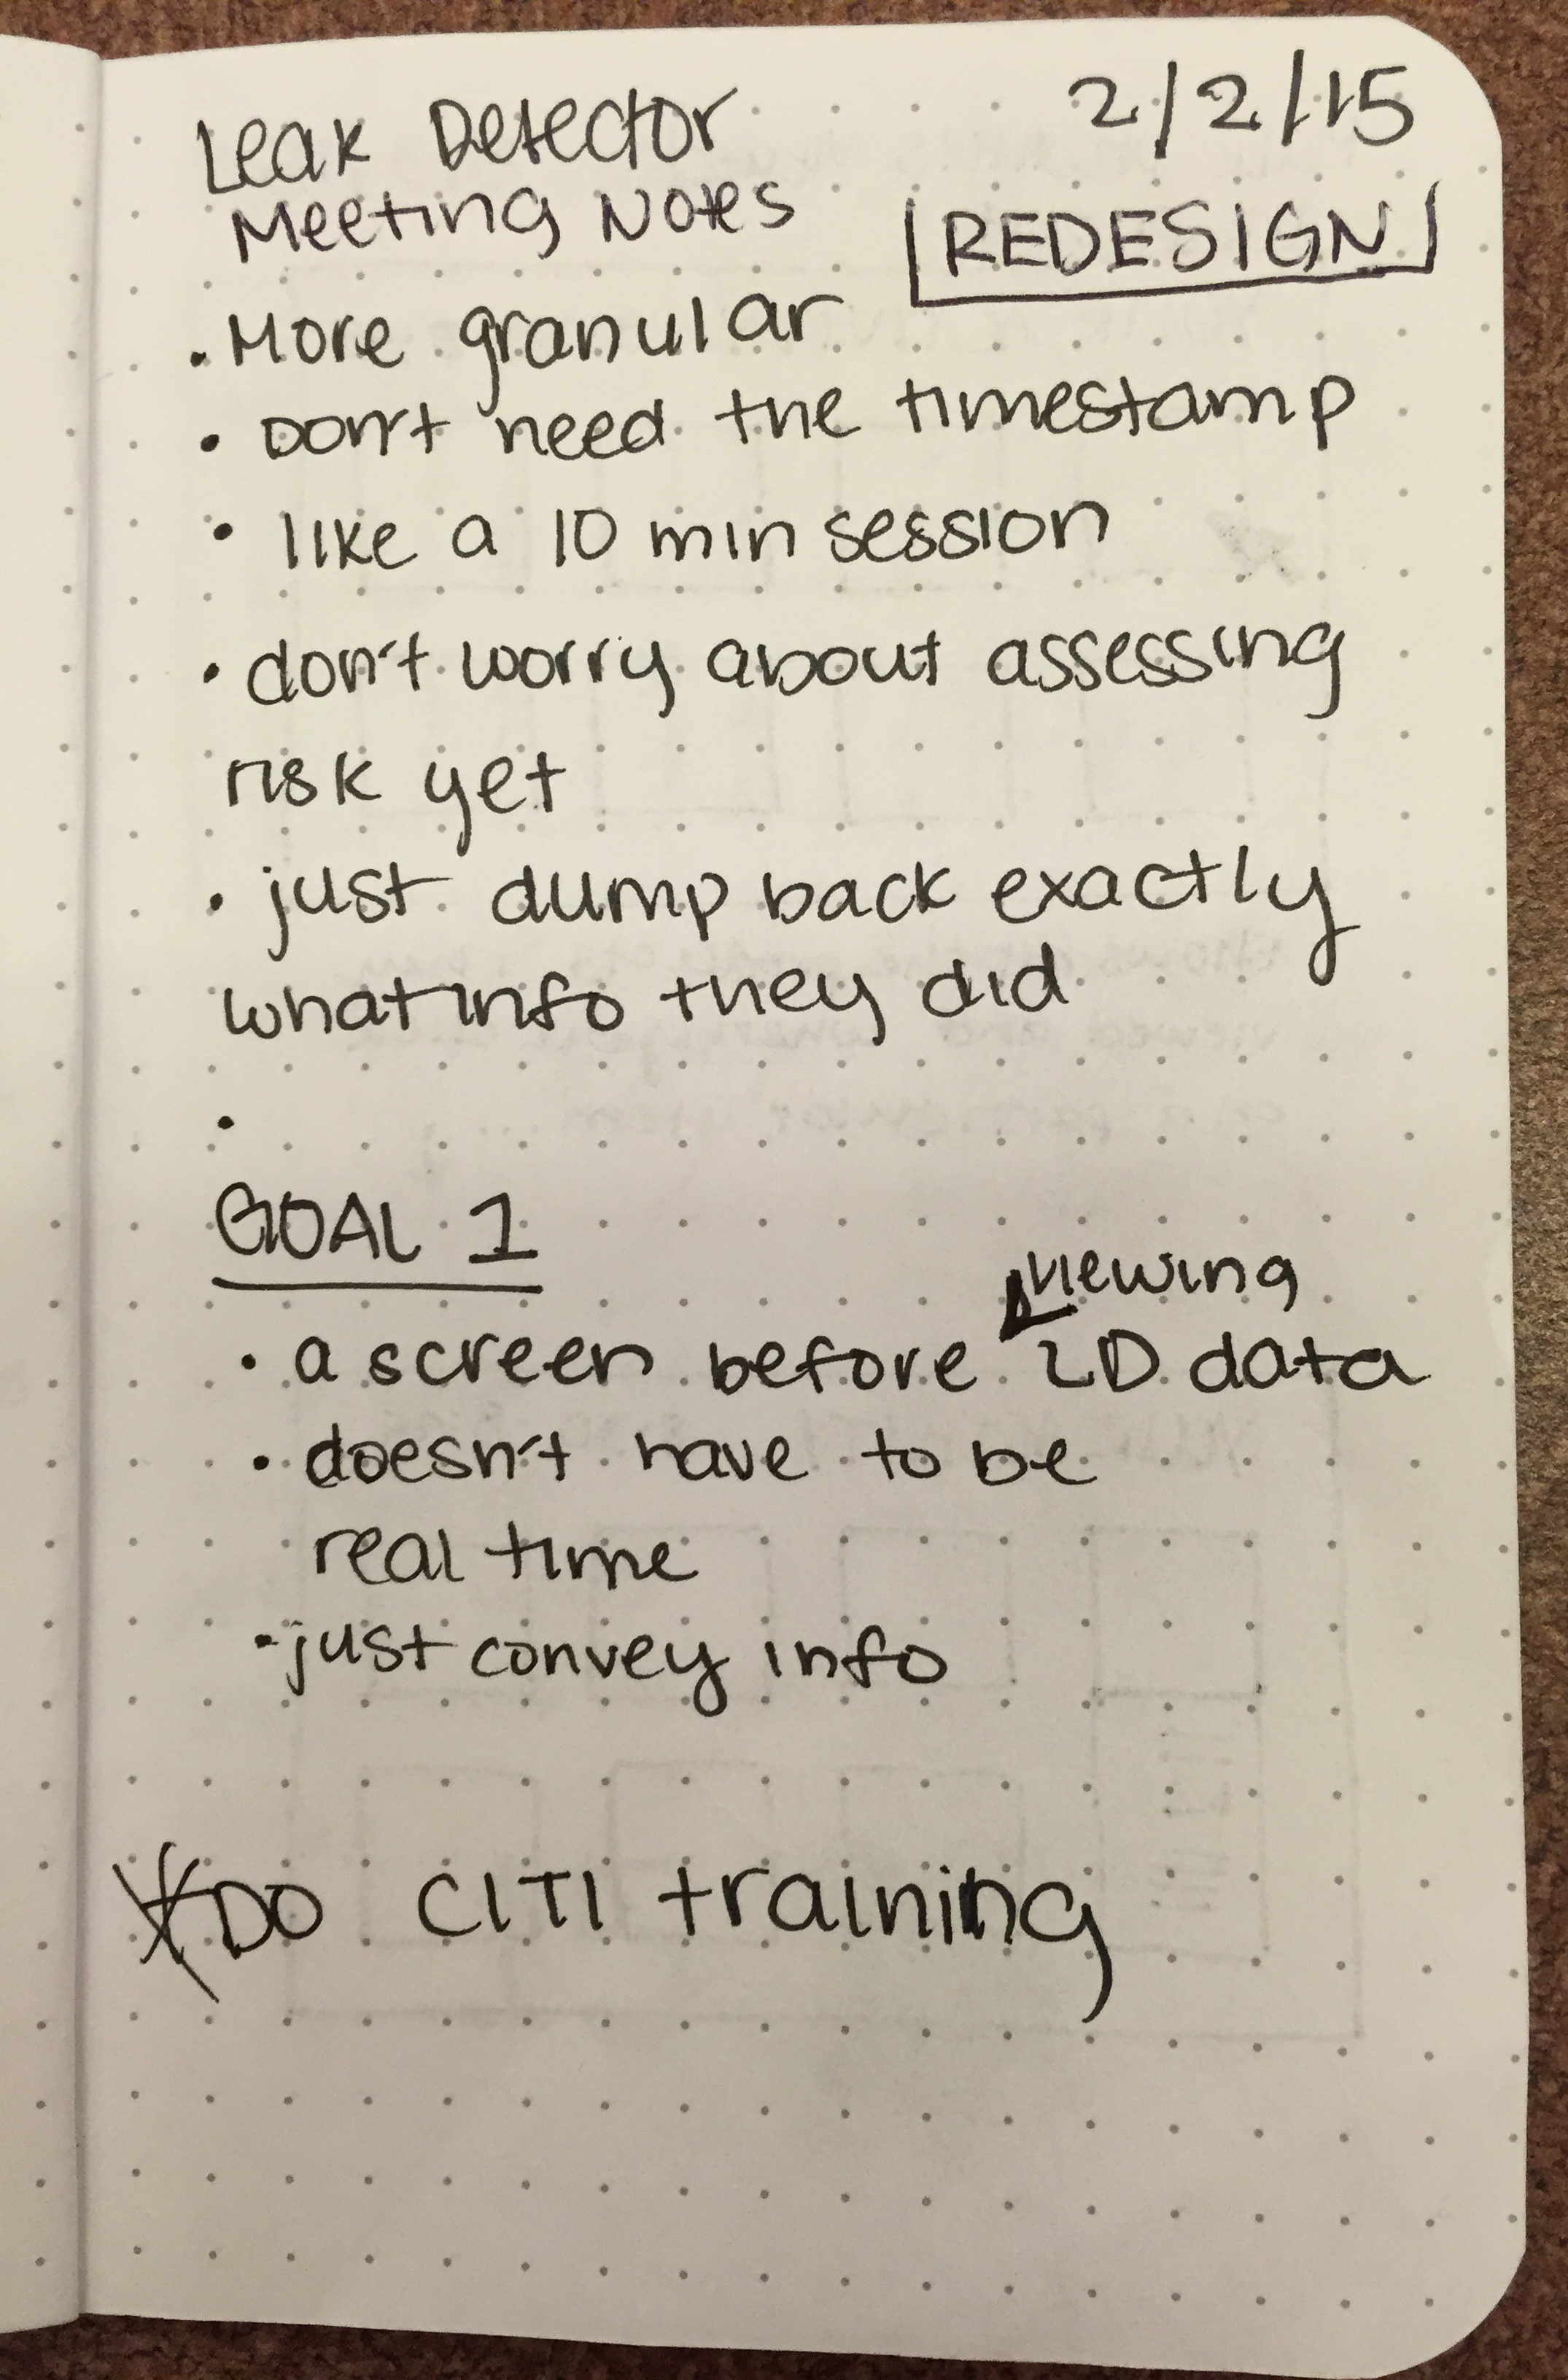 Leak Detector
Meeting Notes
2/2/15
REDESIGN
• More granular
• Don't need the timestamp
• like a 10 min session
• don't worry about assessing
risk yet
• just dump back exactly
what info they did
•
GOAL 1
viewing
• a screen before LD data
• doesn't have to be
real time
• just convey info
* DO CITI training